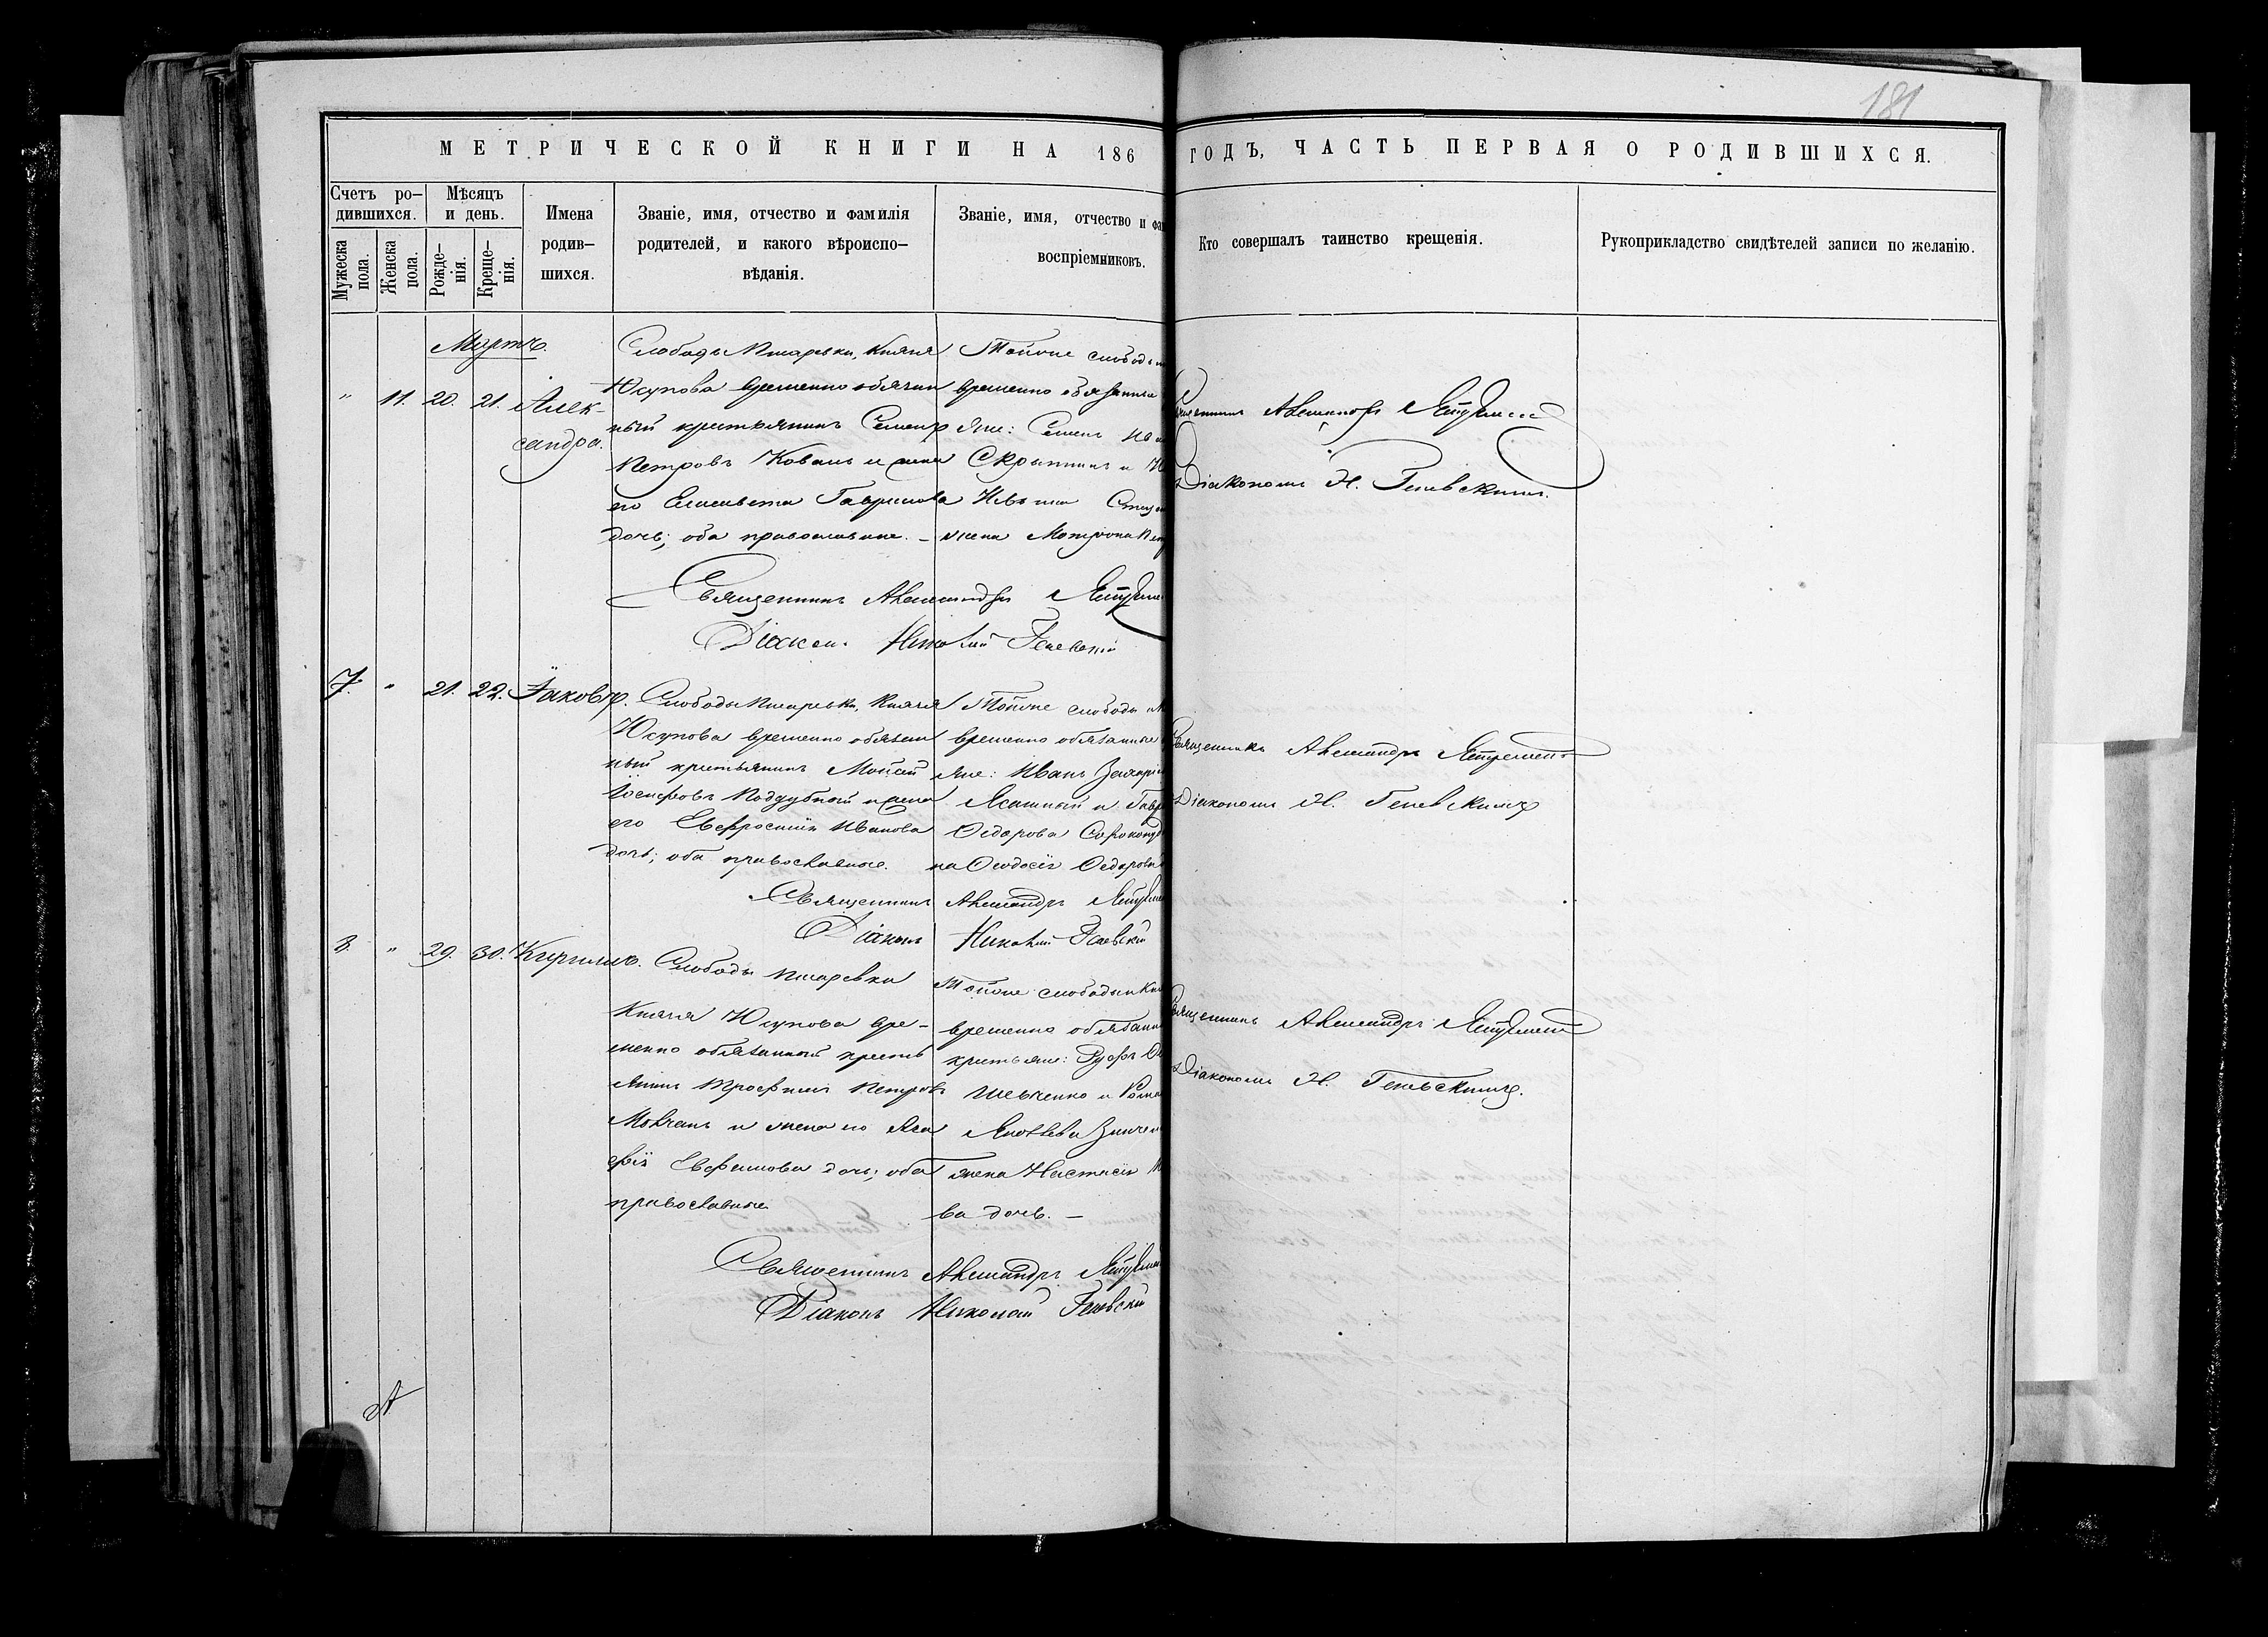 181
МЕТРИЧЕСКОЙ КНИГИ НА 186 ГОДЪ, ЧАСТЬ ПЕРВАЯ О РОДИВШИХСЯ.
Счетъ ро-
дившихся.
Мужеска
пола.
Женска
пола.
Мѣсяцъ
и день.
Рожде-
нія.
Креще-
нія.
Имена
родив-
шихся.
Званіе, имя, отчество и фамилія
родителей, и какого вѣроиспо-
вѣданія.
Званіе, имя, отчество и фа
воспріемниковъ.
Кто совершалъ таинство крещенія.
Рукоприкладство свидѣтелей записи по желанію.
Мартъ.
" 11. 20. 21. Алек-
сандра.
Слободы Писаревки, Князя
Юсупова временно обязан
ный крестьянинъ Семенъ
Петровъ Коваль и жена
его Елисавета Гаврилова
дочь; оба православные. –
Тойже слободы
временно обязанные
яне: Семенъ
Скрыпникъ и
жена Матрона
Священникъ Александръ
Діакономъ Н. Геневскимъ.
Священникъ Александръ
Діаконъ Николай Геневскій
7. " 21. 22. Іаковъ.
Слободы Писаревки, Князя
Юсупова временно обязан
ный крестьянинъ Моисей
Іосифовъ Поддубный и жена
его Евфросинія Иванова
дочь; оба православные.
Тойже слободы
временно обязанные
яне: Иванъ Захарі
Ясашный и Гавр
Ѳедорова Сорокопуд
на Ѳеодосія Ѳедорова
Священникъ Александръ
Діакономъ Н. Геневскимъ
Священникъ Александръ
Діаконъ Николай Геневскій
8. " 29. 30. Кириллъ.
Слободы Писаревки
Князя Юсупова вре-
менно обязанный кресть
янинъ Трофимъ Петровъ
Мовчанъ и жена его Ага
фія Евфимова дочь; оба
православные
Тойже слободы Кня
временно обязанн
крестьяне: Руфъ
Шевченко и Рома
Яковлева Зинчен
жена Настасія
ва дочь. –
Священникъ Александръ
Діакономъ Н. Геневскимъ.
Священникъ Александръ
Діаконъ Николай Геневскій